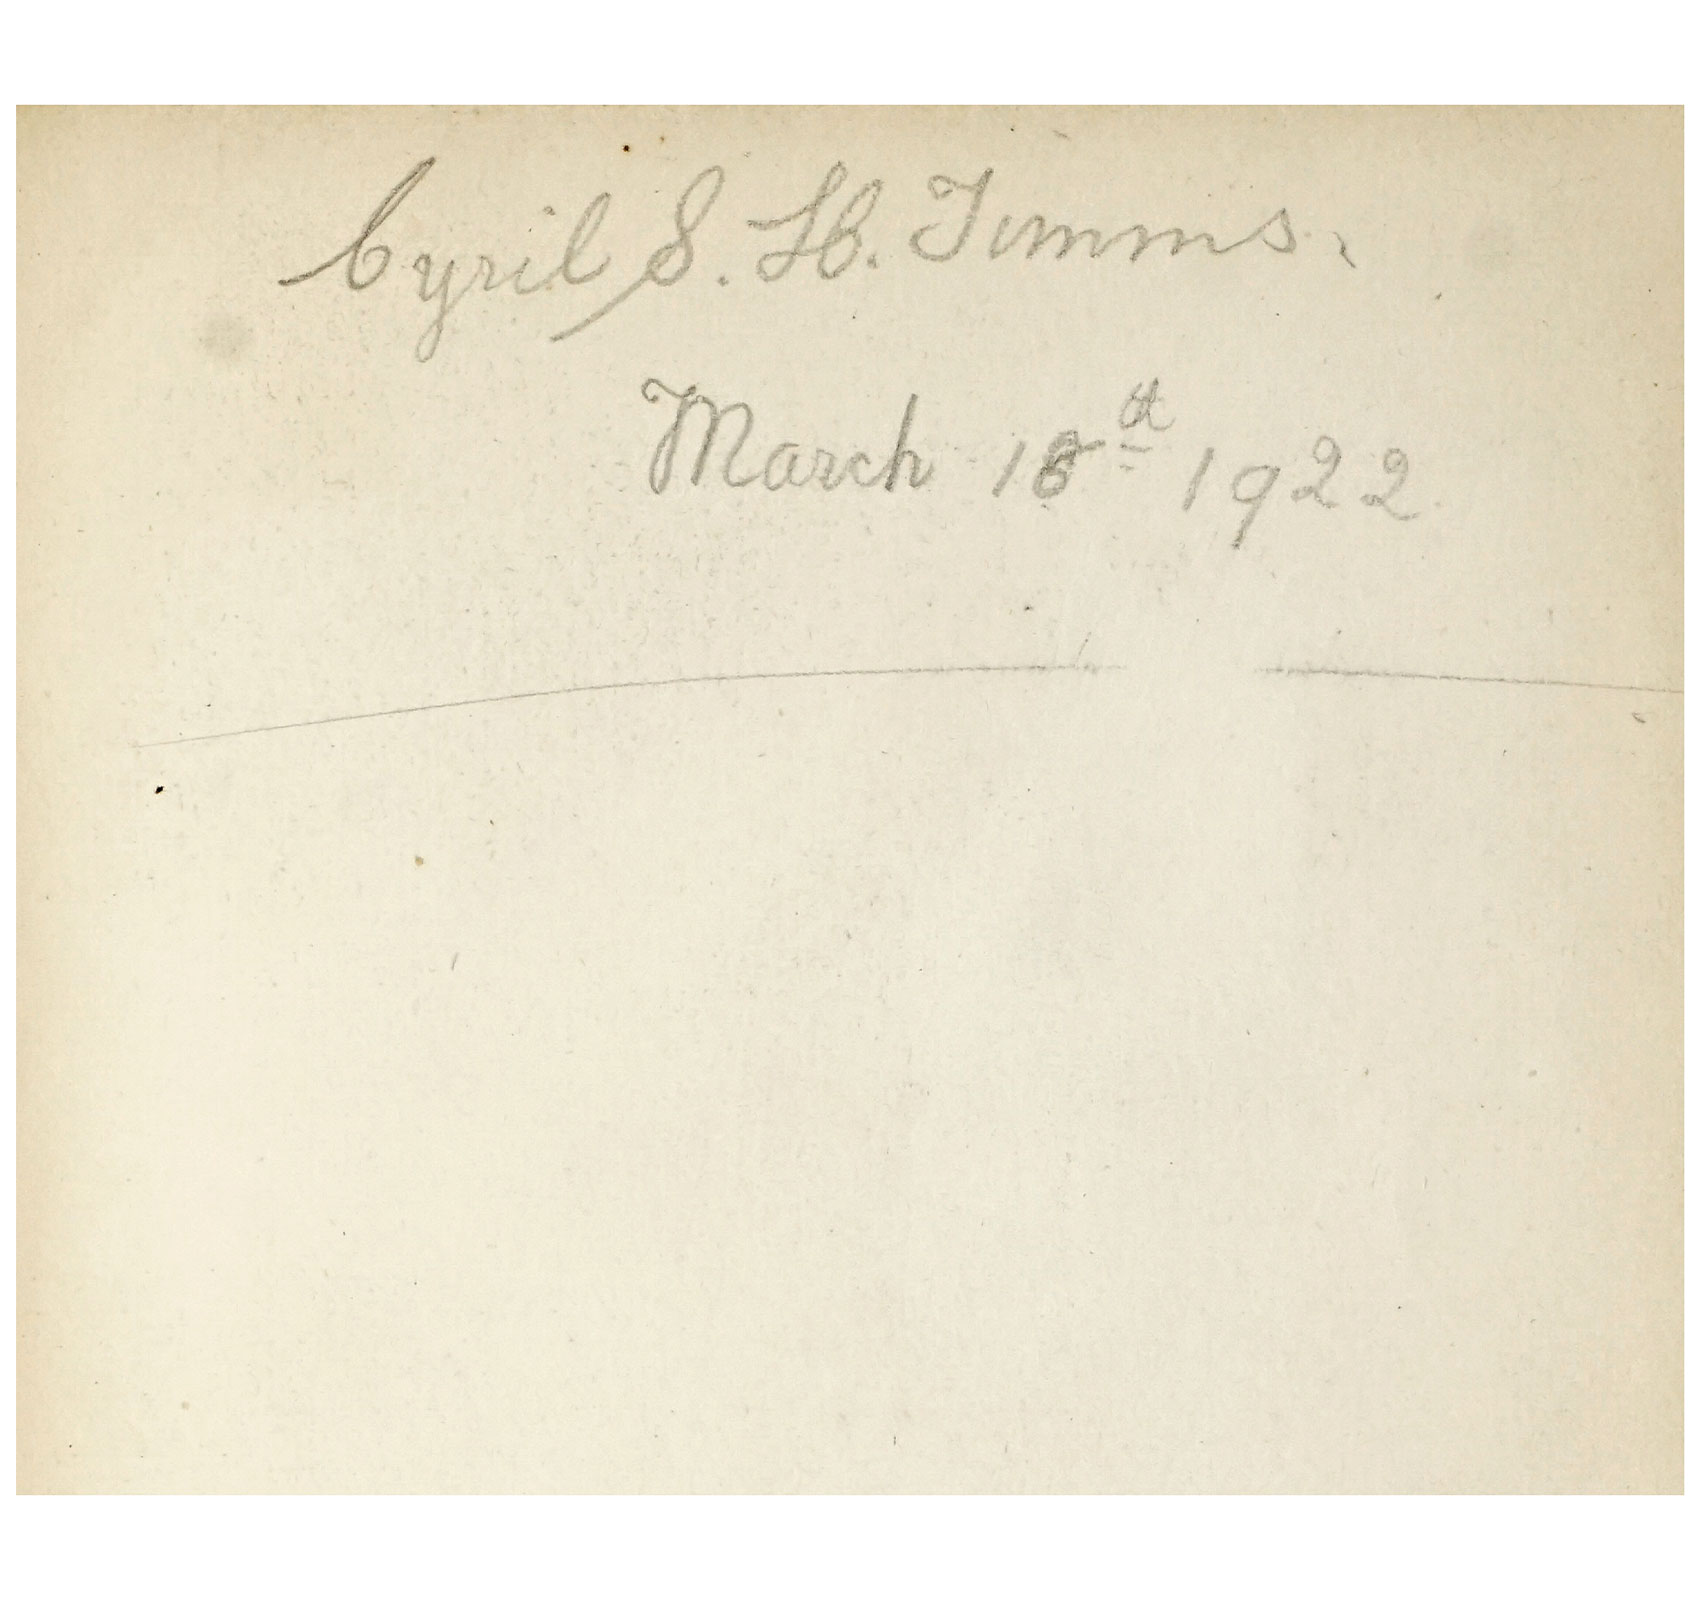 Cyril S. H. Timms.
March 1922